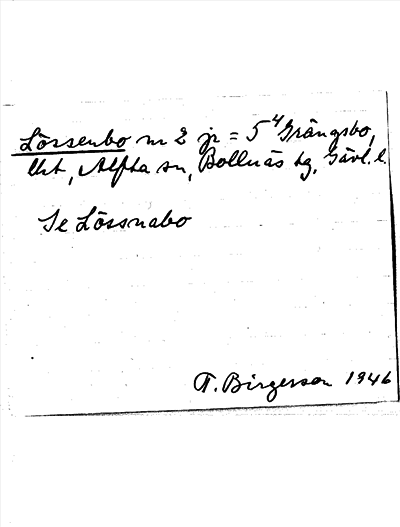 Lössenbo nr 2 jr = 5⁴ Grängsbo,
Alfta sn, Bollnäs tg, Gävl. l.
Se Lössnabo
T. Birgerson 1946